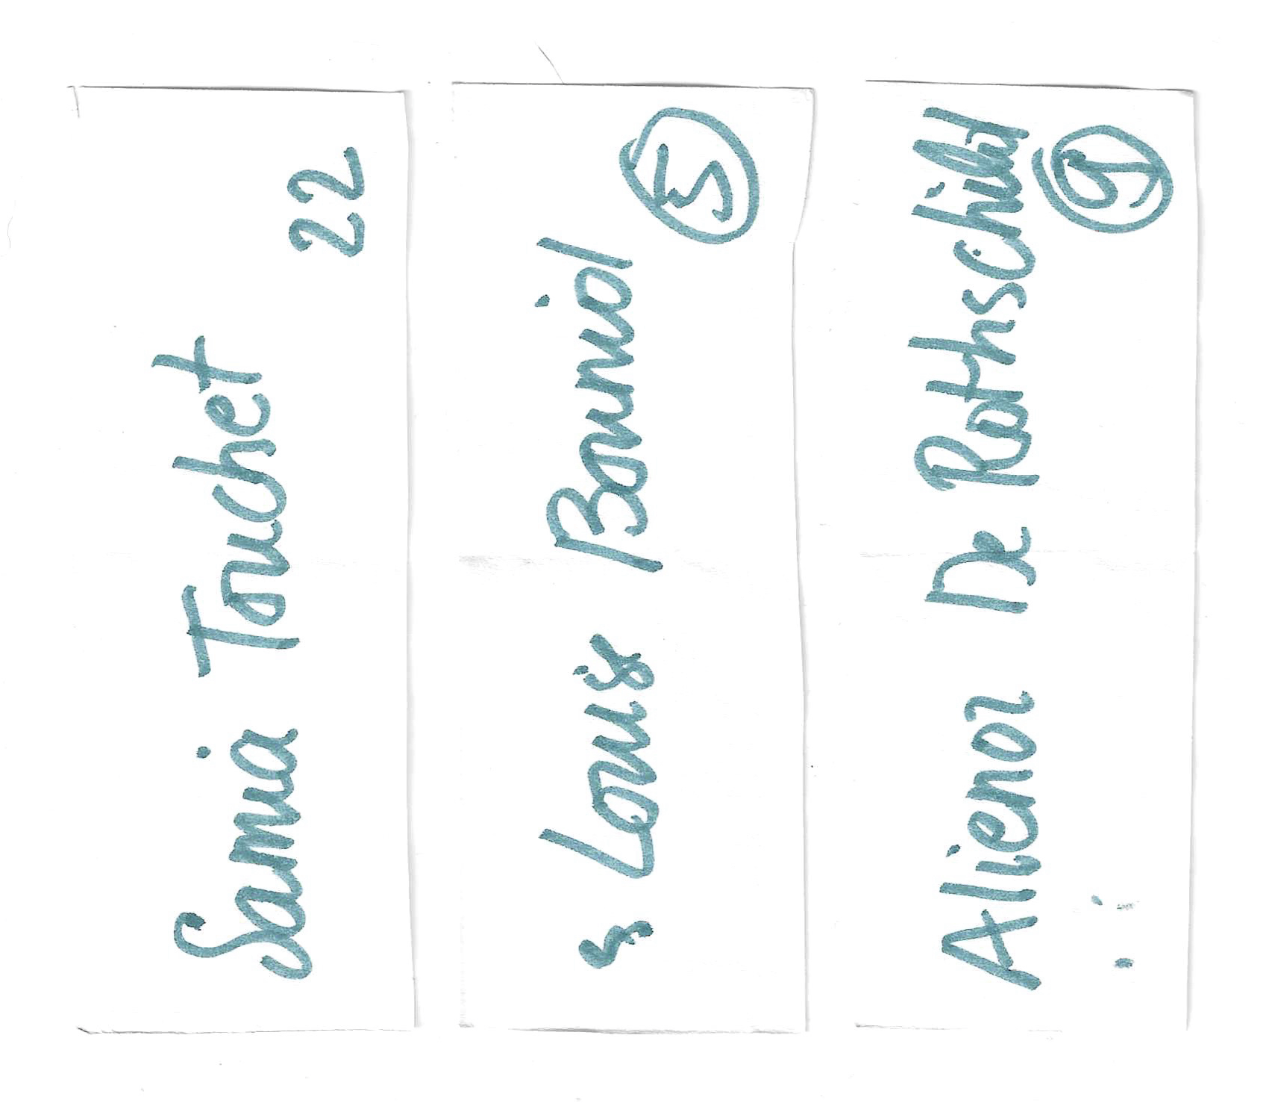 Samia Touchet
22
Louis Bouniol
5
Alienor De Rothschild
9